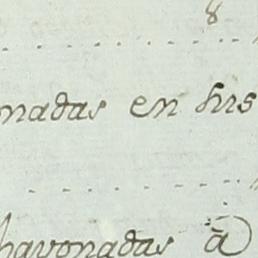 8
nadas en his
havonadas à